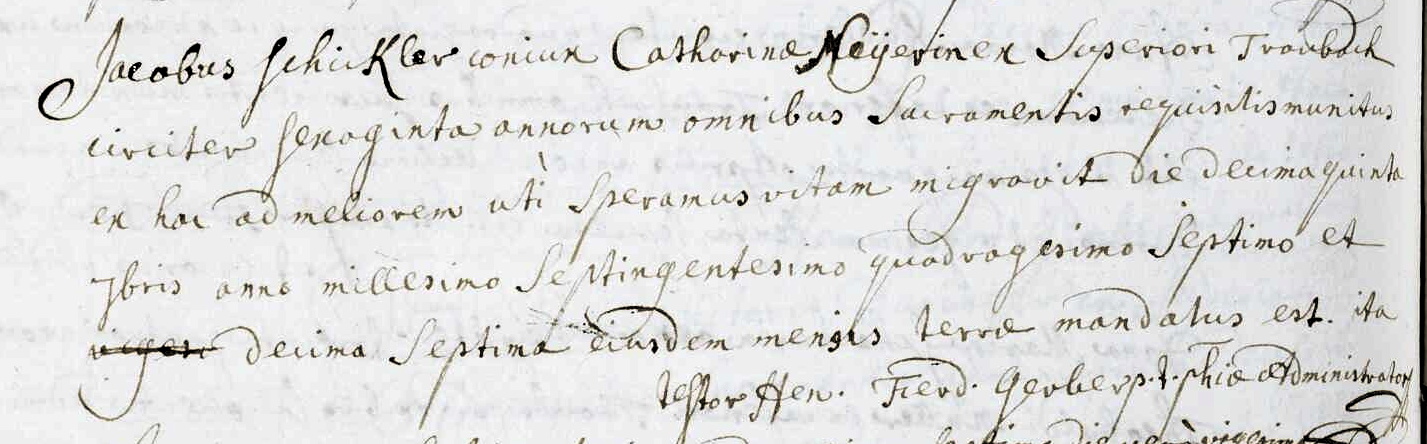 Jacobus Schickler coniux Catharinæ Meÿerin ex Superiori Traubach
circiter sexaginta annorum omnibus Sacramentis requisitis munitus
ex hac ad meliorem uti Speramus vitam migravit die decima quinta
7bris anno millesimo Septingentesimo quadragesimo Septimo et
decima Septima eiusdem mensis terræ mandatus est. ita
testor Hen. Ferd. Gerber p.t. phiæ Administrator